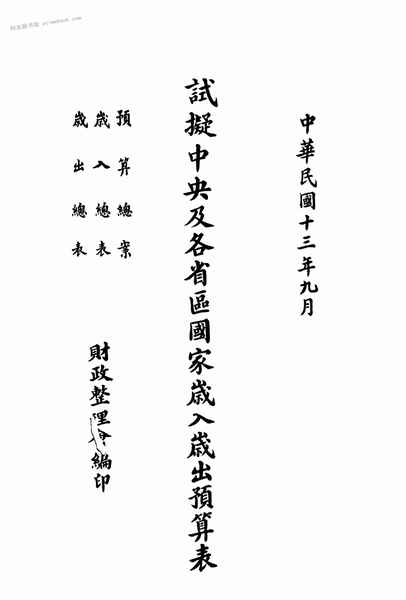 中華民國十三年九月
試擬中央及各省區國家歲入歲出預算表
預算總案
歲入總表
歲出總表
財政整理會編印